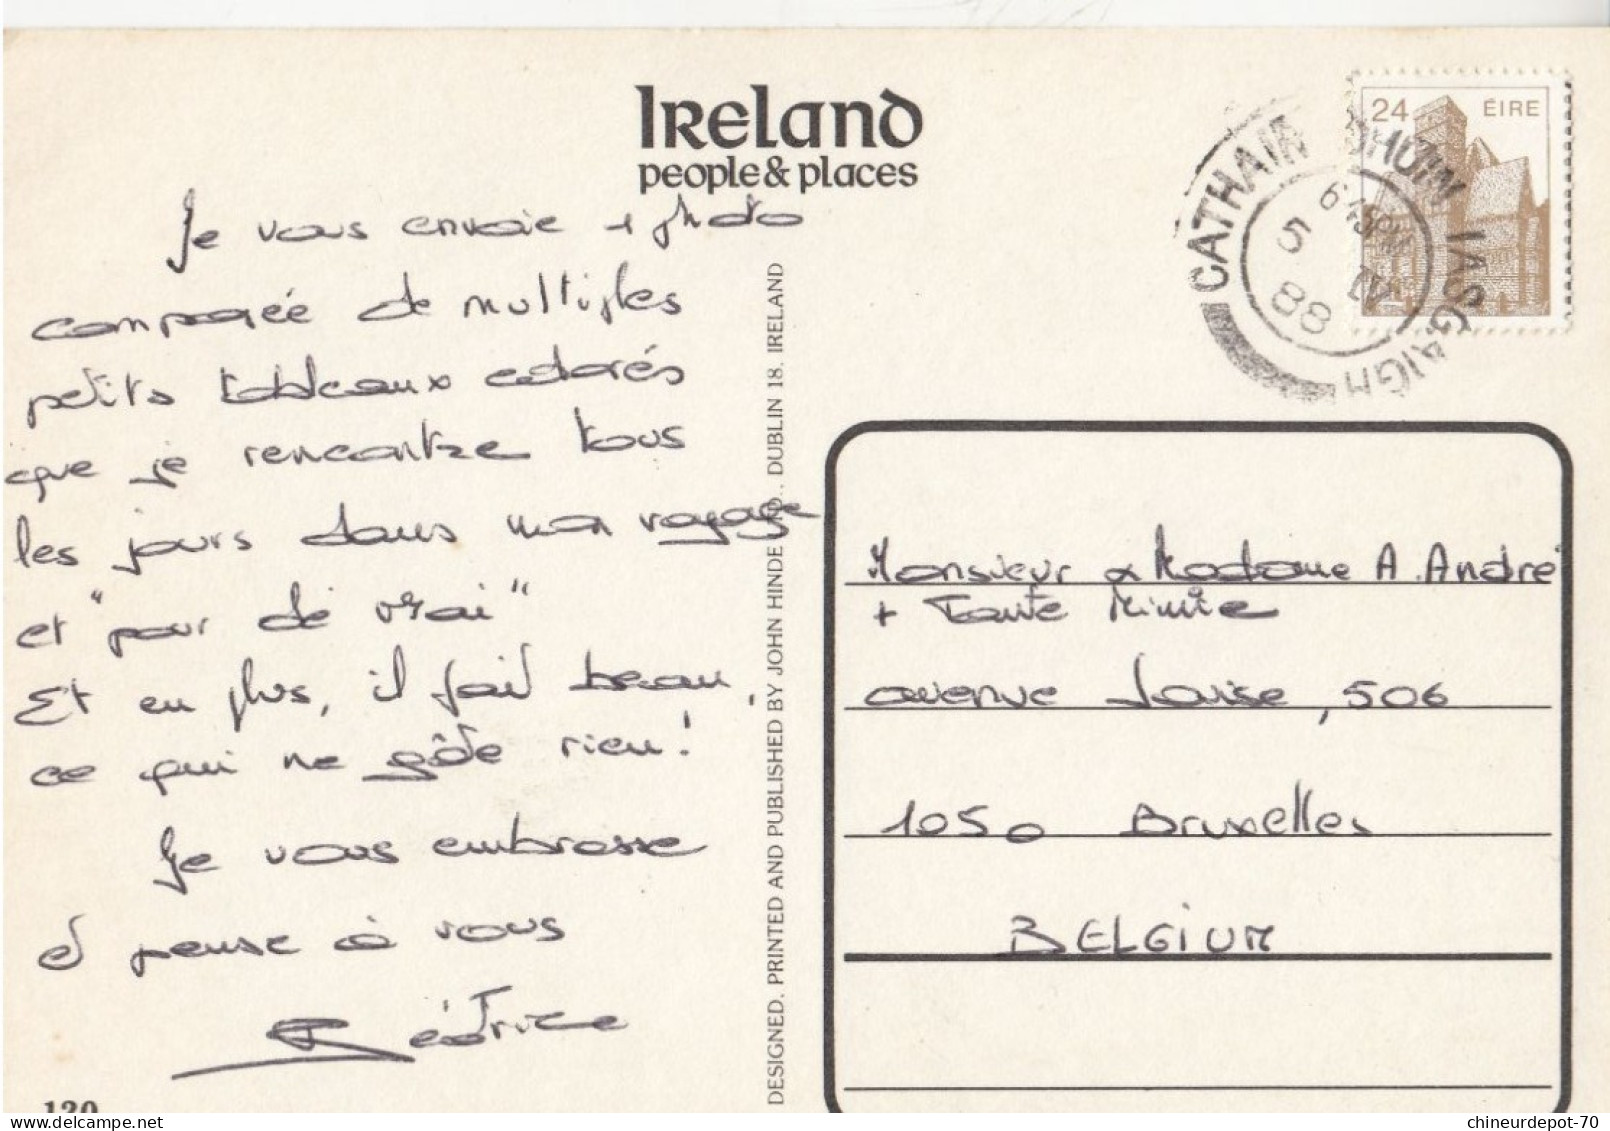 Ireland
people & places
24 ÉIRE
CATHAIR DHÚIN IASGAIGH
6 45PM
5 IV
88
Je vous envoie 1 photo
composée de multiples
petits tableaux colorés
que je rencontre tous
les jours dans mon voyage
et "pour de vrai"
Et en plus, il fait beau,
ce qui ne gâte rien!
Je vous embrasse
et pense à vous
Béatrice
120
DESIGNED, PRINTED AND PUBLISHED BY JOHN HINDE LTD., DUBLIN 18, IRELAND
Monsieur & Madame A. André
+ Tante Mimie
avenue Louise, 506
1050 Bruxelles
BELGIUM
chineurdepot-70